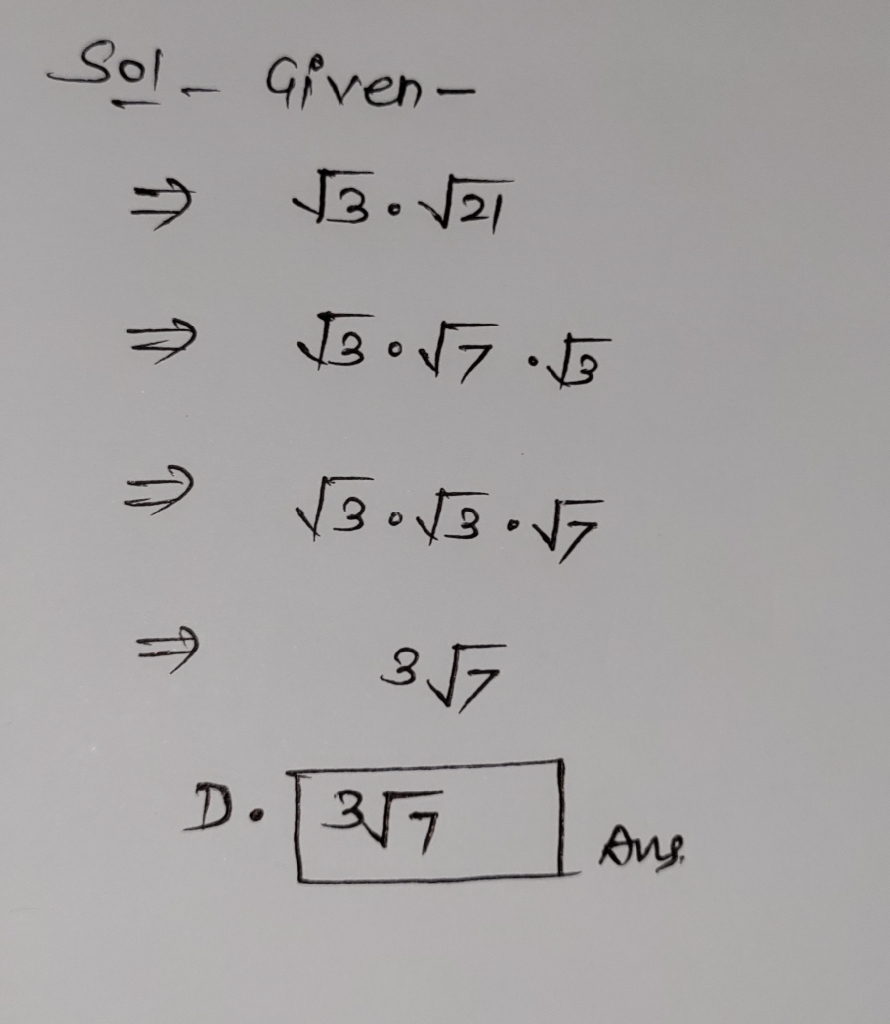 Sol - Given -
⇒ √3 · √21
⇒ √3 · √7 · √3
⇒ √3 · √3 · √7
⇒ 3√7
D. 3√7 Ans.